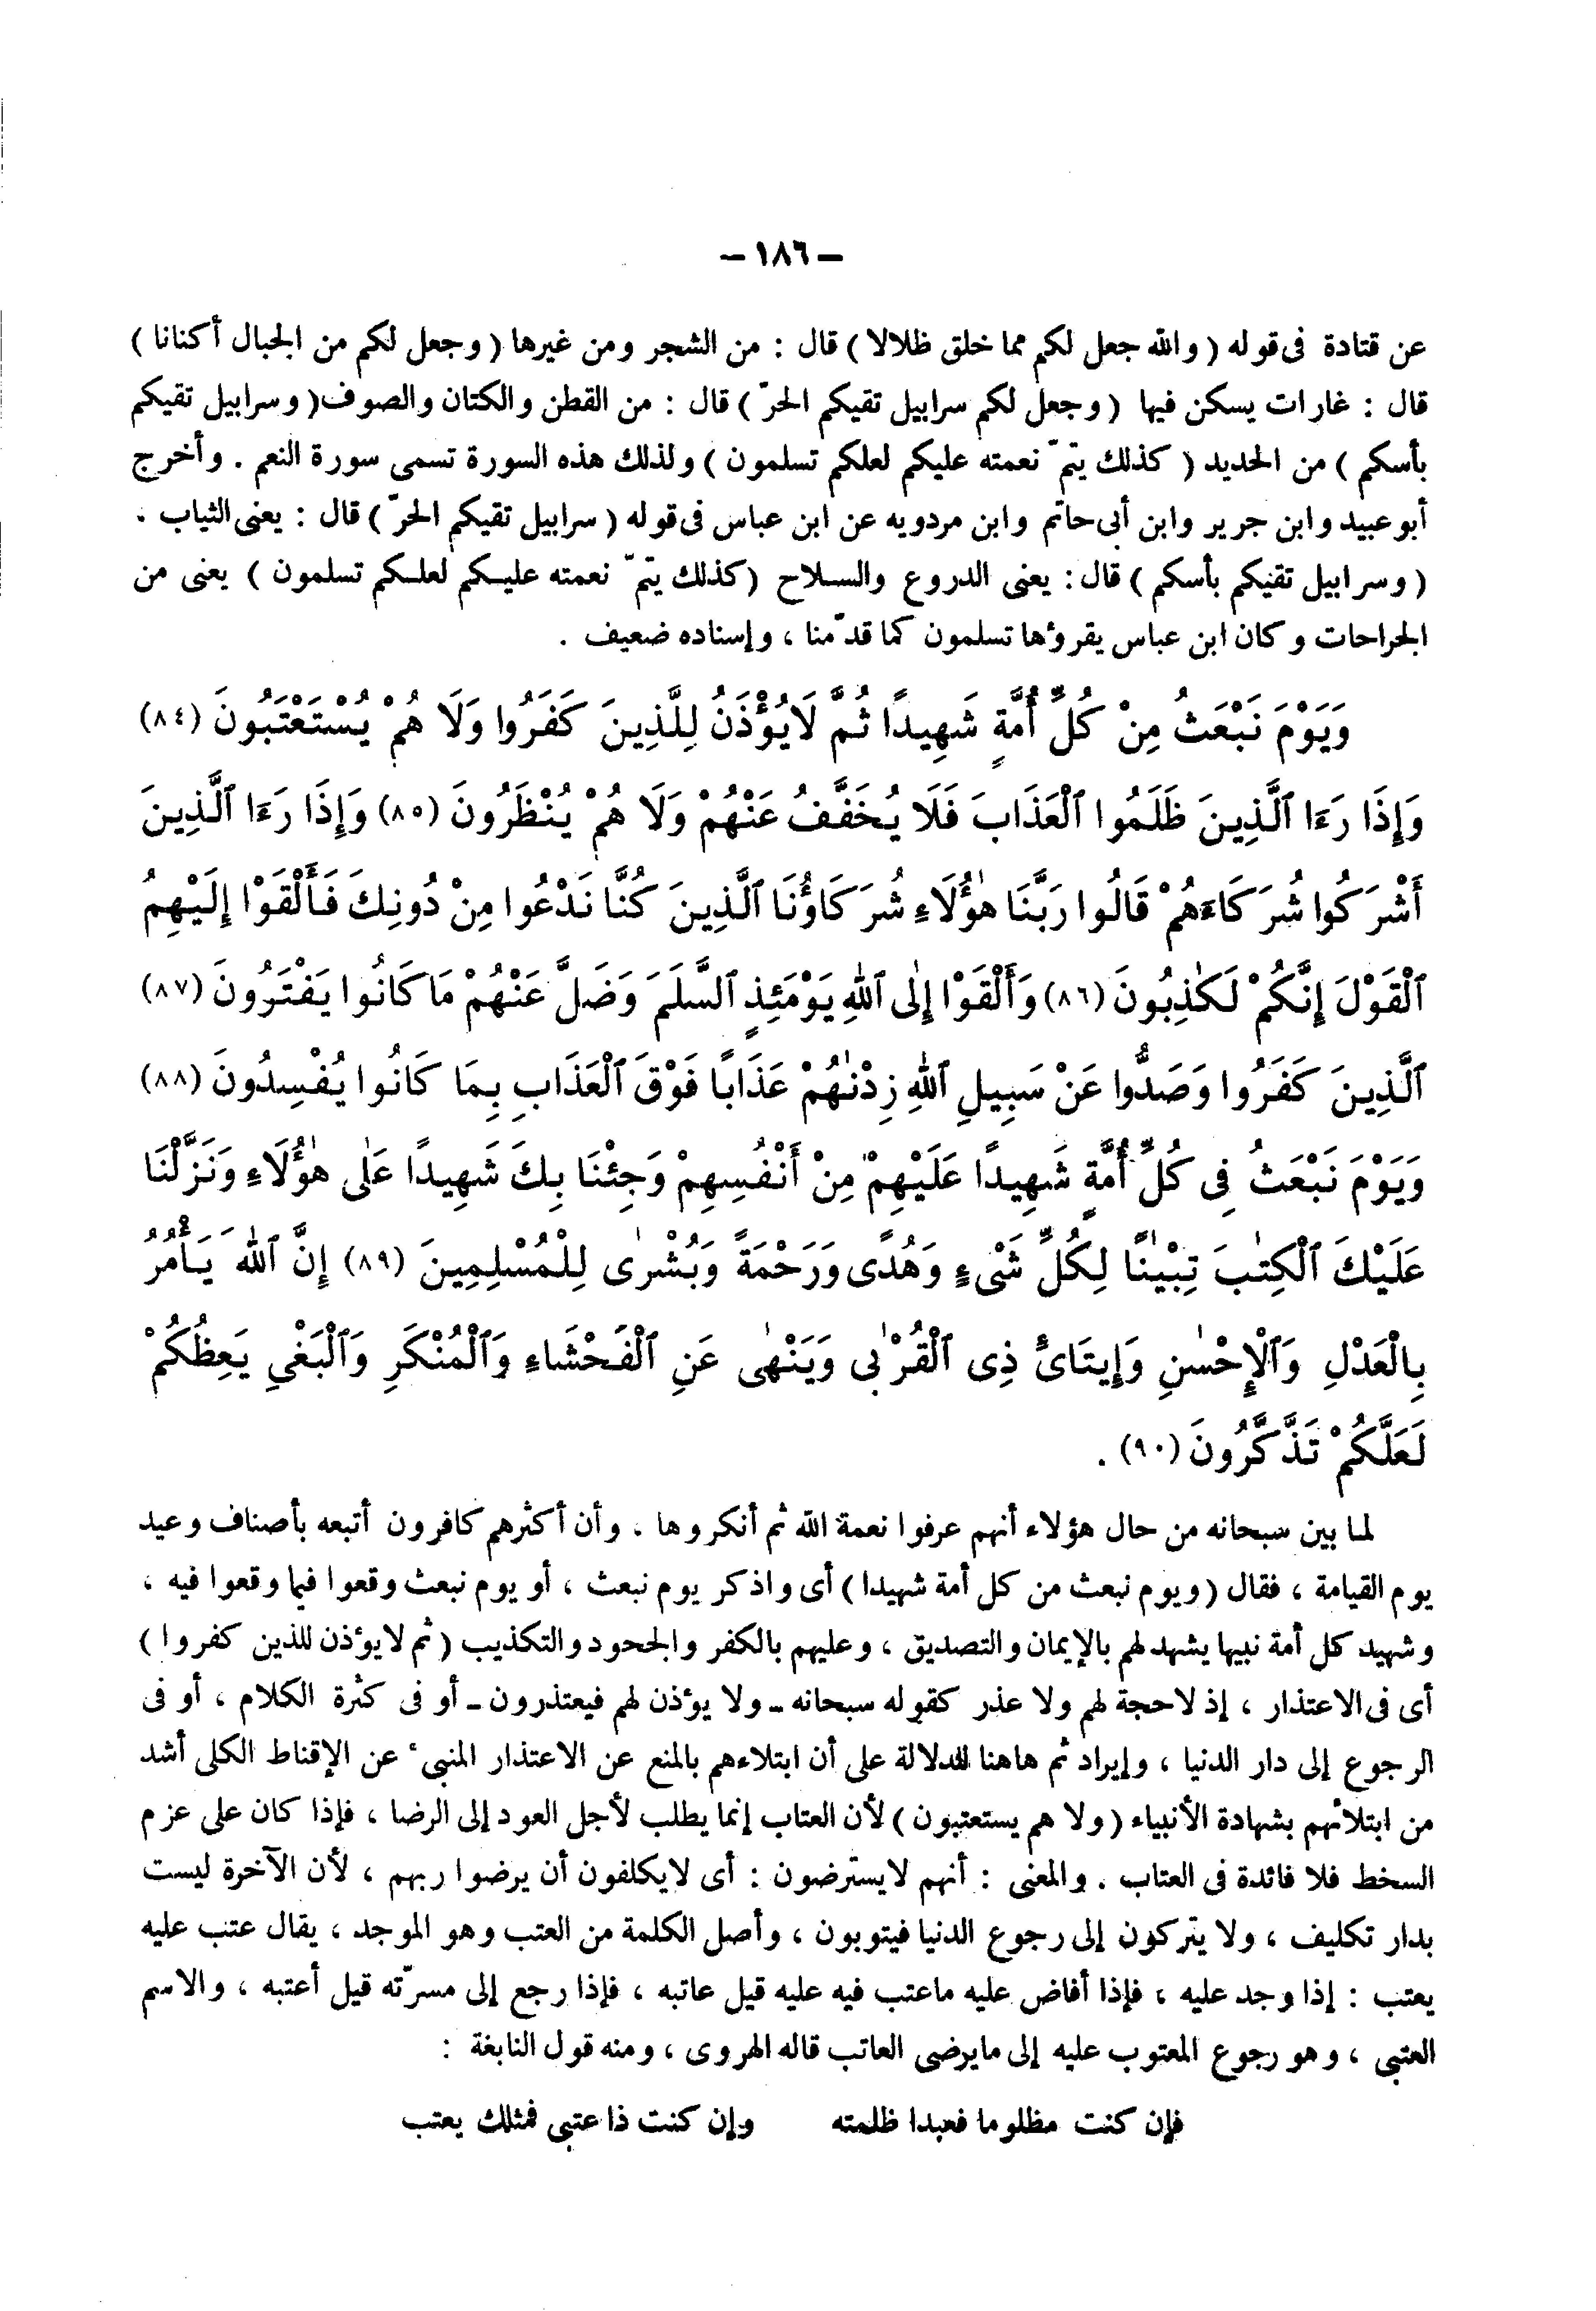 – ١٨٦ –
عن قتادة فى قوله ( والله جعل لكم مما خلق ظلالا ) قال : من الشجر ومن غيرها ( وجعل لكم من الجبال أكنانا )
قال : غارات يسكن فيها ( وجعل لكم سرابيل تقيكم الحرّ ) قال : من القطن والكتان والصوف ( وسرابيل تقيكم
بأسكم ) من الحديد ( كذلك يتمّ نعمته عليكم لعلكم تسلمون ) ولذلك هذه السورة تسمى سورة النعم . وأخرج
أبو عبيد وابن جرير وابن أبى حاتم وابن مردويه عن ابن عباس فى قوله ( سرابيل تقيكم الحرّ ) قال : يعنى الثياب ،
( وسرابيل تقيكم بأسكم ) قال : يعنى الدروع والسلاح ( كذلك يتمّ نعمته عليكم لعلكم تسلمون ) يعنى من
الجراحات وكان ابن عباس يقرؤها تسلمون كما قدّمنا ، وإسناده ضعيف .
وَيَوْمَ نَبْعَثُ مِنْ كُلِّ أُمَّةٍ شَهِيدًا ثُمَّ لَا يُؤْذَنُ لِلَّذِينَ كَفَرُوا وَلَا هُمْ يُسْتَعْتَبُونَ (٨٤)
وَإِذَا رَءَا ٱلَّذِينَ ظَلَمُوا ٱلْعَذَابَ فَلَا يُخَفَّفُ عَنْهُمْ وَلَا هُمْ يُنْظَرُونَ (٨٥) وَإِذَا رَءَا ٱلَّذِينَ
أَشْرَكُوا شُرَكَاءَهُمْ قَالُوا رَبَّنَا هٰؤُلَاءِ شُرَكَاؤُنَا ٱلَّذِينَ كُنَّا نَدْعُوا مِنْ دُونِكَ فَأَلْقَوْا إِلَيْهِمُ
ٱلْقَوْلَ إِنَّكُمْ لَكٰذِبُونَ (٨٦) وَأَلْقَوْا إِلَى ٱللهِ يَوْمَئِذٍ ٱلسَّلَمَ وَضَلَّ عَنْهُمْ مَا كَانُوا يَفْتَرُونَ (٨٧)
ٱلَّذِينَ كَفَرُوا وَصَدُّوا عَنْ سَبِيلِ ٱللهِ زِدْنٰهُمْ عَذَابًا فَوْقَ ٱلْعَذَابِ بِمَا كَانُوا يُفْسِدُونَ (٨٨)
وَيَوْمَ نَبْعَثُ فِى كُلِّ أُمَّةٍ شَهِيدًا عَلَيْهِمْ مِنْ أَنْفُسِهِمْ وَجِئْنَا بِكَ شَهِيدًا عَلٰى هٰؤُلَاءِ وَنَزَّلْنَا
عَلَيْكَ ٱلْكِتٰبَ تِبْيٰنًا لِكُلِّ شَىْءٍ وَهُدًى وَرَحْمَةً وَبُشْرٰى لِلْمُسْلِمِينَ (٨٩) إِنَّ ٱللهَ يَأْمُرُ
بِالْعَدْلِ وَٱلْإِحْسٰنِ وَإِيتَائِ ذِى ٱلْقُرْبٰى وَيَنْهٰى عَنِ ٱلْفَحْشَاءِ وَٱلْمُنْكَرِ وَٱلْبَغْىِ يَعِظُكُمْ
لَعَلَّكُمْ تَذَكَّرُونَ (٩٠) .
لما بين سبحانه من حال هؤلاء أنهم عرفوا نعمة الله ثم أنكروها ، وأن أكثرهم كافرون أتبعه بأصناف وعيد
يوم القيامة ، فقال ( ويوم نبعث من كل أمة شهيدا ) أى واذكر يوم نبعث ، أو يوم نبعث وقعوا فيما وقعوا فيه ،
وشهيد كل أمة نبيها يشهد لهم بالإيمان والتصديق ، وعليهم بالكفر والجحود والتكذيب ( ثم لا يؤذن للذين كفروا )
أى فى الاعتذار ، إذ لا حجة لهم ولا عذر كقوله سبحانه – ولا يؤذن لهم فيعتذرون – أو فى كثرة الكلام ، أو فى
الرجوع إلى دار الدنيا ، وإيراد ثم هاهنا للدلالة على أن ابتلاءهم بالمنع عن الاعتذار المنبىء عن الإقناط الكلى أشد
من ابتلائهم بشهادة الأنبياء ( ولا هم يستعتبون ) لأن العتاب إنما يطلب لأجل العود إلى الرضا ، فإذا كان على عزم
السخط فلا فائدة فى العتاب . والمعنى : أنهم لا يسترضون : أى لا يكلفون أن يرضوا ربهم ، لأن الآخرة ليست
بدار تكليف ، ولا يتركون إلى رجوع الدنيا فيتوبون ، وأصل الكلمة من العتب وهو الموجد ، يقال عتب عليه
يعتب : إذا وجد عليه ، فإذا أفاض عليه ماعتب فيه عليه قيل عاتبه ، فإذا رجع إلى مسرّته قيل أعتبه ، والاسم
العتبى ، وهو رجوع المعتوب عليه إلى مايرضى العاتب قاله الهروى ، ومنه قول النابغة :
فإن كنت مظلوما فعبدا ظلمته وإن كنت ذا عتبى فمثلك يعتب